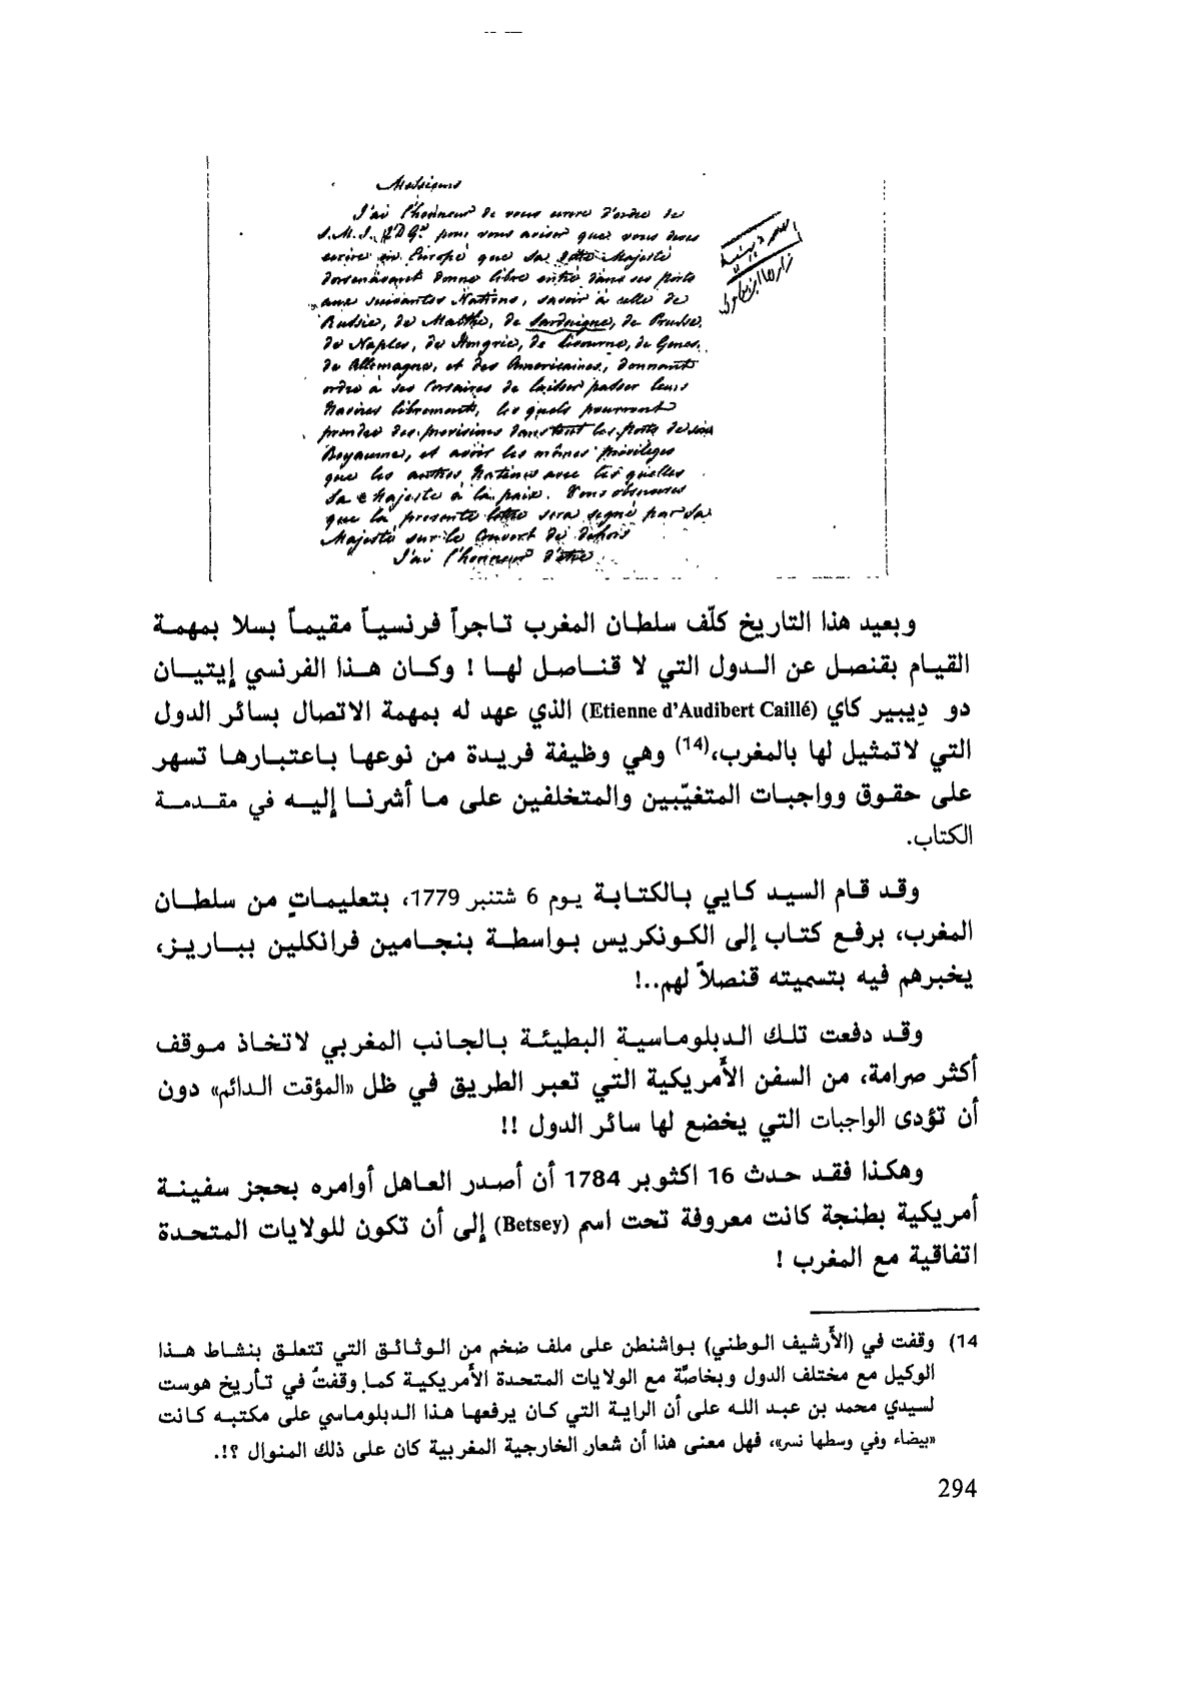 Messieurs
J'ai l'honneur de vous ecrire d'ordre de
S.M.I. pour vous aviser que vous devés
ecrire en Europe que Sa ditte Majesté
dorenavant donne libre entré dans ses ports
aux suivantes Nations, savoir à celle de
Russie, de Malthe, de Sardaigne, de Prusse,
de Naples, de Hongrie, de Livourne, de Genes,
de Allemagne, et des Americaines, donnant
ordre à ses Corsaires de laisser passer leurs
Navires librement, les quels pourront
prendre des provisions dans tout les ports de son
Royaume, et avoir les mêmes privileges
que les autres Nations avec les quelles
Sa Majesté à la paix. Vous observerés
que la presente lettre sera signé par Sa
Majesté sur le Couvert de dehors
J'ai l'honneur d'être
وبعيد هذا التاريخ كلّف سلطان المغرب تاجراً فرنسياً مقيماً بسلا بمهمة
القيام بقنصل عن الدول التي لا قناصل لها ! وكان هذا الفرنسي إيتيان
دو دِيبير كاي (Etienne d'Audibert Caillé) الذي عهد له بمهمة الاتصال بسائر الدول
التي لاتمثيل لها بالمغرب،(14) وهي وظيفة فريدة من نوعها باعتبارها تسهر
على حقوق وواجبات المتغيّبين والمتخلفين على ما أشرنا إليه في مقدمة
الكتاب.
وقد قام السيد كايي بالكتابة يوم 6 شتنبر 1779، بتعليماتٍ من سلطان
المغرب، برفع كتاب إلى الكونكريس بواسطة بنجامين فرانكلين بباريز،
يخبرهم فيه بتسميته قنصلاً لهم..!
وقد دفعت تلك الدبلوماسية البطيئة بالجانب المغربي لاتخاذ موقف
أكثر صرامة، من السفن الأمريكية التي تعبر الطريق في ظل «المؤقت الدائم» دون
أن تؤدى الواجبات التي يخضع لها سائر الدول !!
وهكذا فقد حدث 16 اكتوبر 1784 أن أصدر العاهل أوامره بحجز سفينة
أمريكية بطنجة كانت معروفة تحت اسم (Betsey) إلى أن تكون للولايات المتحدة
اتفاقية مع المغرب !
14) وقفت في (الأرشيف الوطني) بواشنطن على ملف ضخم من الوثائق التي تتعلق بنشاط هذا
الوكيل مع مختلف الدول وبخاصّة مع الولايات المتحدة الأمريكية كما وقفتُ في تأريخ هوست
لسيدي محمد بن عبد الله على أن الراية التي كان يرفعها هذا الدبلوماسي على مكتبه كانت
«بيضاء وفي وسطها نسر»، فهل معنى هذا أن شعار الخارجية المغربية كان على ذلك المنوال ؟!.
294